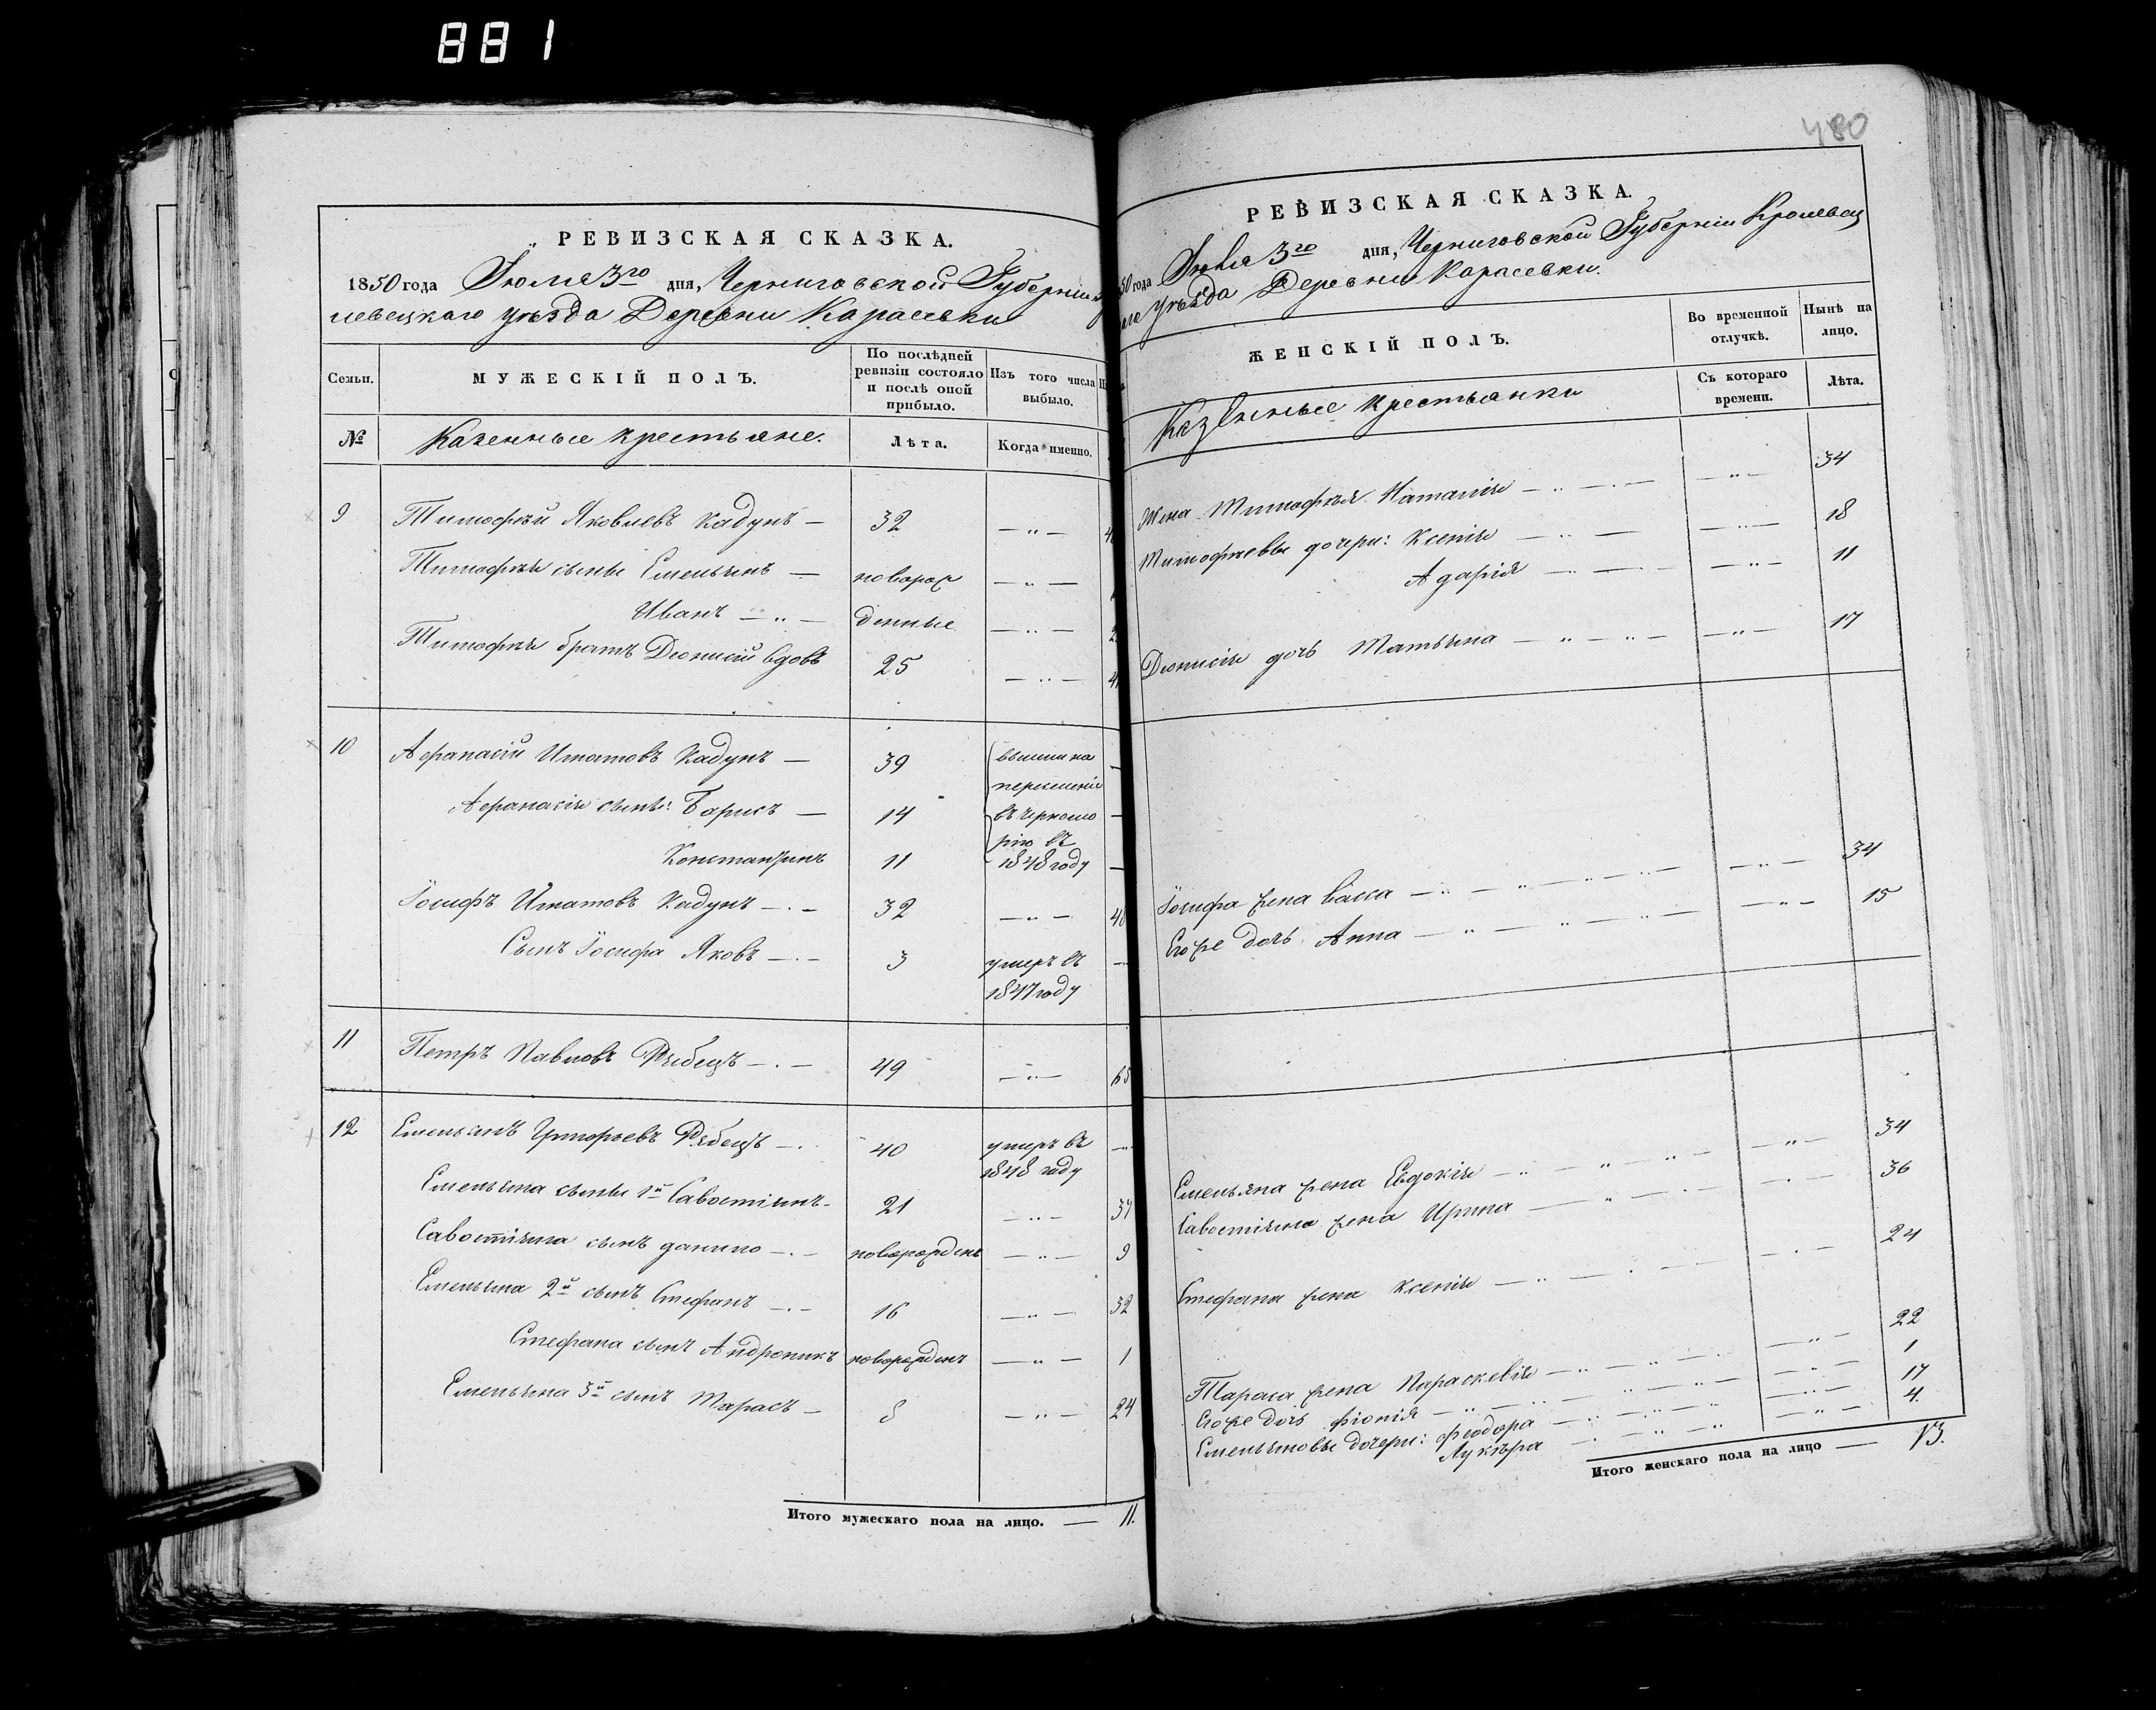 881
РЕВИЗСКАЯ СКАЗКА.
1850 года Іюля 3го дня, Черниговской Губерніи
левецкаго уѣзда Деревни Карасевки
Семьи.
МУЖЕСКІЙ ПОЛЪ.
По послѣдней ревизіи состояло и послѣ оной прибыло.
Изъ того числа выбыло.
№
Казенные крестьяне.
Лѣта.
Когда именно.
9 Тимофѣй Яковлевъ Кадунъ — 32 — „ —
Тимофѣя сыны Емельянъ — новорож — „ —
Иванъ — „ — денные — „ —
Тимофѣя братъ Діонисій вдовъ 25 — „ —
10 Афанасій Игнатовъ Кадунъ — 39 вышли на
переселеніе
Афанасія сыны: Борисъ — 14 въ черномо
рію въ
Константинъ 11 1848 году
Іосифъ Игнатовъ Кадунъ — 32 — „ —
Сынъ Іосифа Яковъ — 3 умеръ въ
1847 году
11 Петръ Павловъ Рябецъ — 49 — „ — 65
12 Емельянъ Григорьевъ Рябецъ — 40 умеръ въ —
1848 году
Емельяна сыны 1й Савостіянъ - 21 — „ — 37
Савостіяна сынъ данило — новорожденъ — „ — 9
Емельяна 2й сынъ Стефанъ — 16 — „ — 32
Стефана сынъ Андроникъ новорожденъ — „ — 1
Емельяна 3й сынъ Тарасъ — 8 — „ — 24
Итого мужескаго пола на лицо. — 11.
480
РЕВИЗСКАЯ СКАЗКА.
50 года Іюля 3го дня, Черниговской Губерніи Кролевец
уѣзда Деревни Карасевки.
ЖЕНСКІЙ ПОЛЪ.
Во временной отлучкѣ.
Нынѣ на лицо.
Казенные крестьянки
Съ котораго времени.
Лѣта.
Жена Тимофѣя Наталія — „ — 34
Тимофѣевы дочери: Ксенія — „ — 18
Адарія — „ — 11
Діонисія дочь Татьяна — „ — 17
Іосифа жена Васса — „ — 34
Его же дочь Анна — „ — 15
Емельяна жена Евдокія — „ — 34
Савостіяна жена Ирина — „ — 36
Стефана жена Ксенія — „ — 24
Тараса жена Параскевія — „ — 22
Его же дочь Фіонія — „ — 1
Емельяновы дочери: Феодора — „ — 17
Лукѣра — „ — 4.
Итого женскаго пола на лицо — 13.